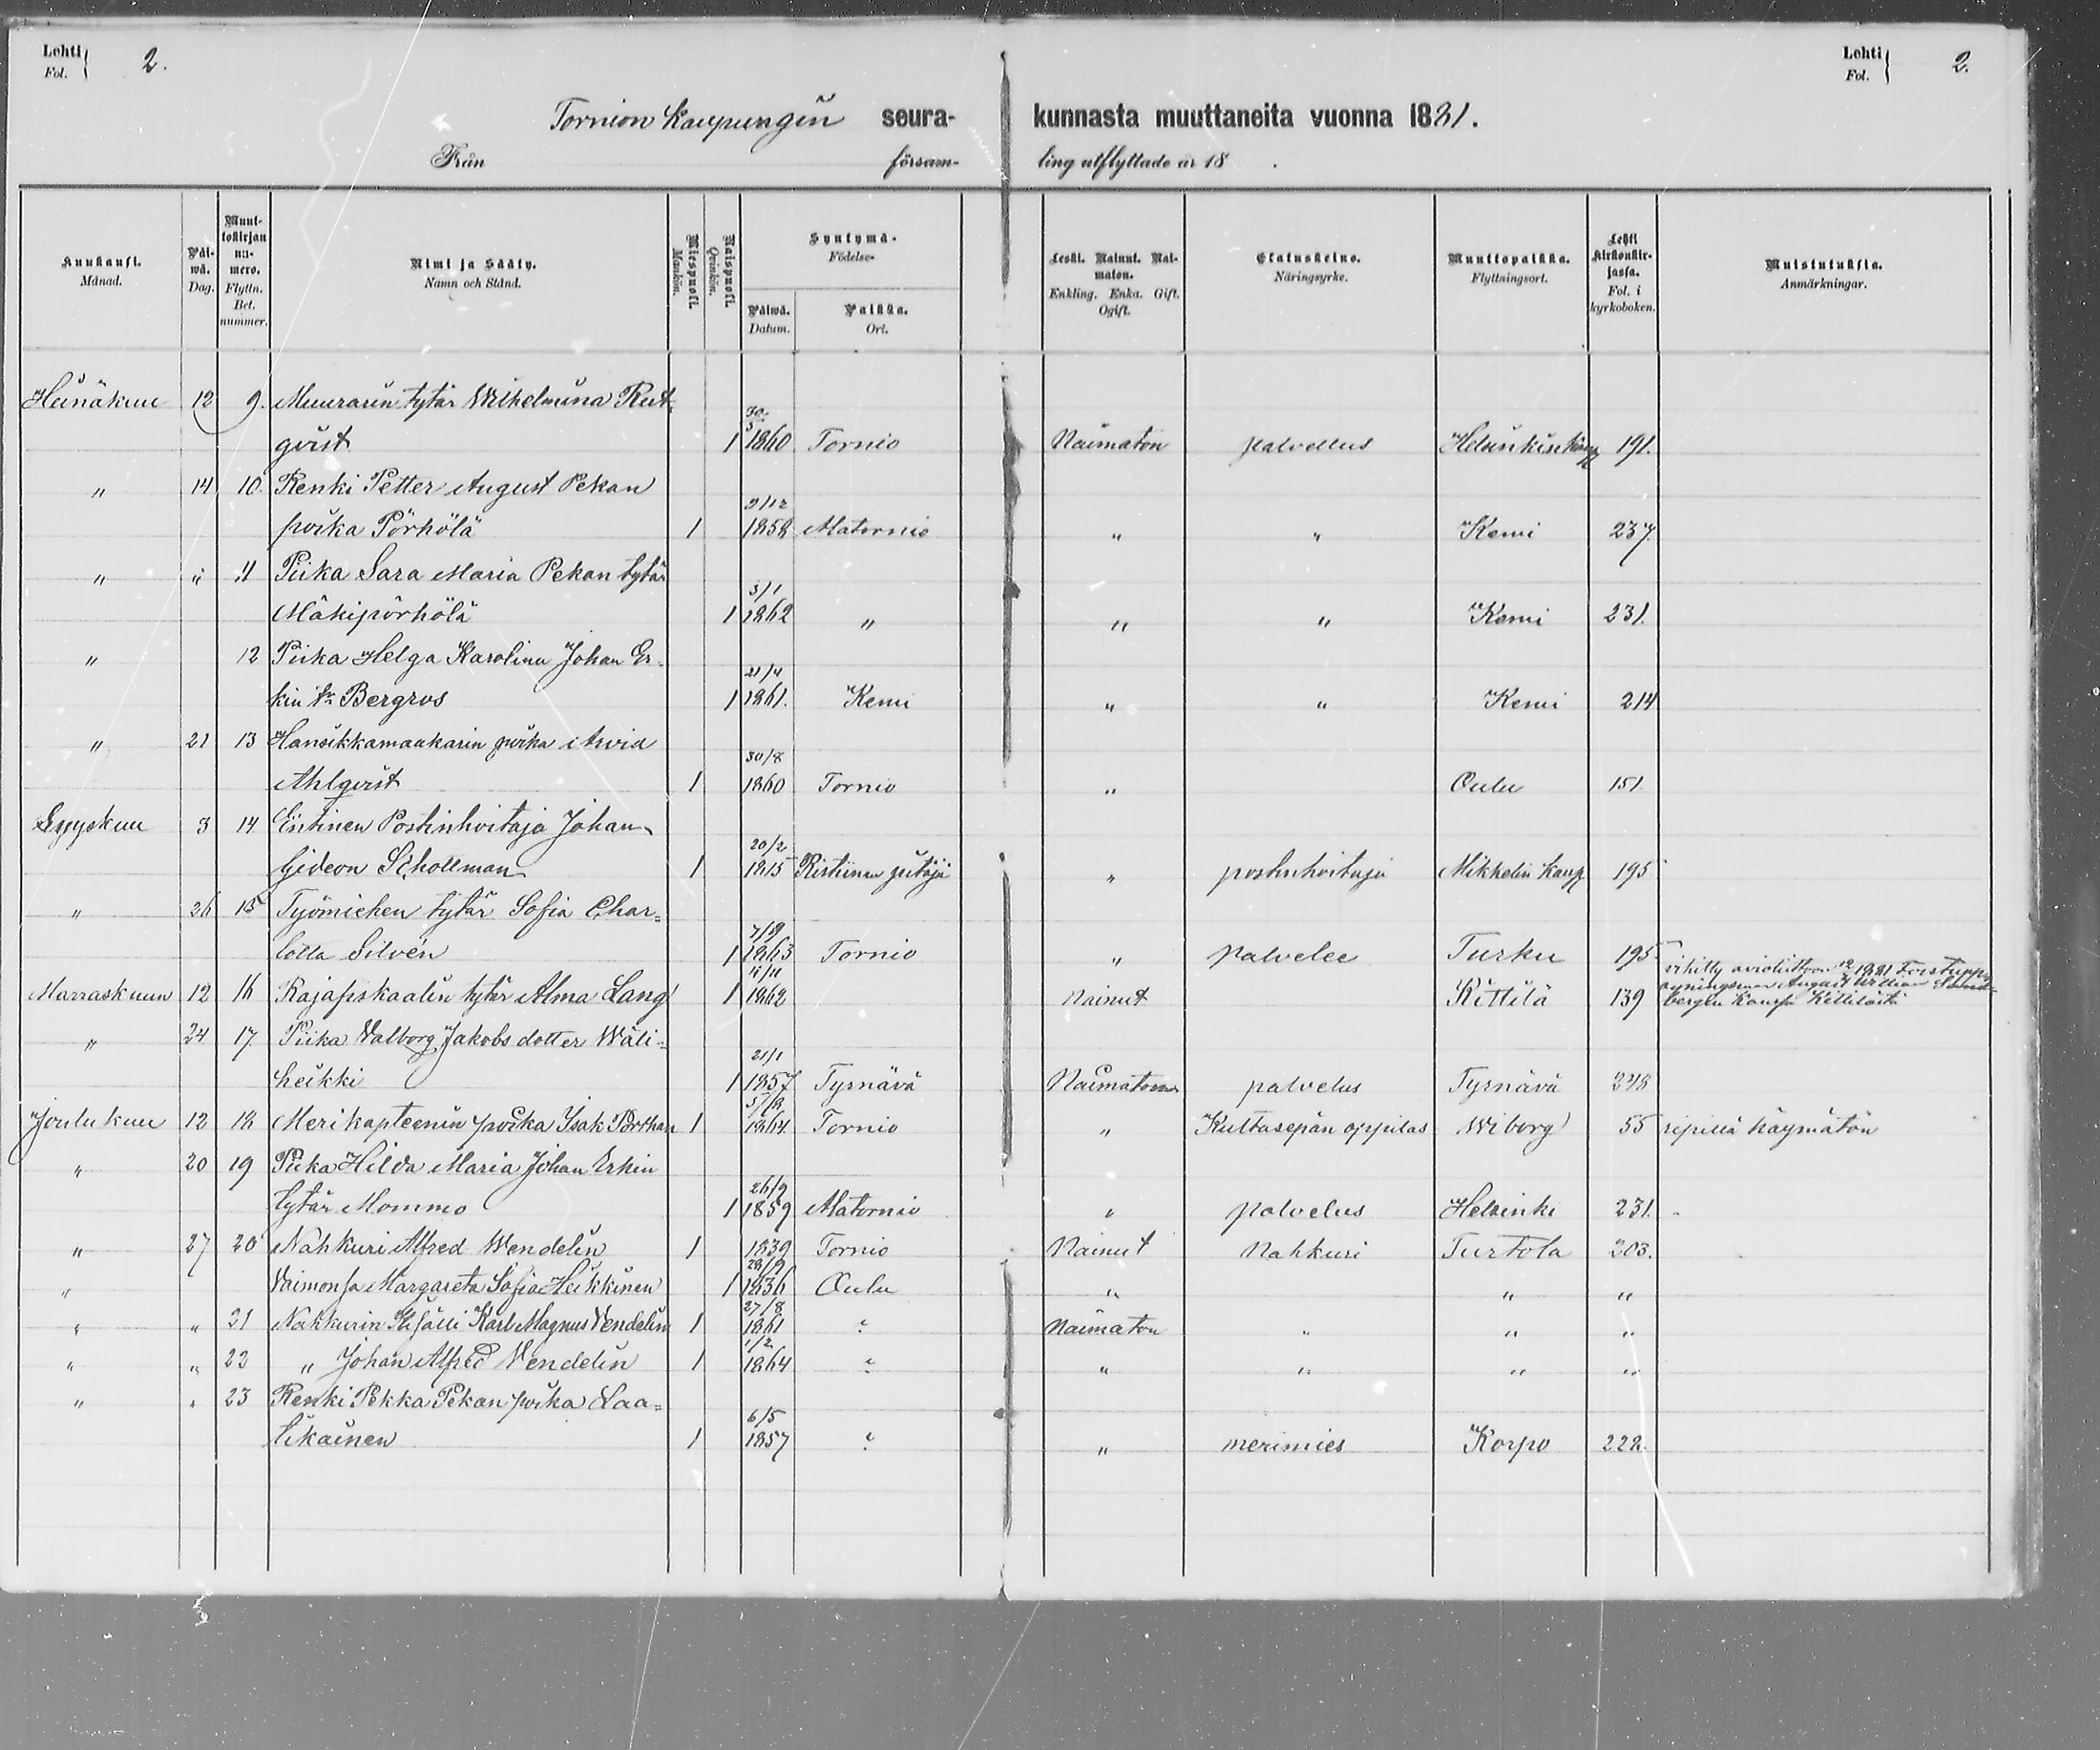 Lehti Fol. 2. Lehti Fol. 2.
Tornion Kaupungin seura- kunnasta muuttaneita vuonna 1881.
Från försam- ling utflyttade år 18 .
Kuukausi. Månad. Päiwä. Dag. Muuttokirjan numero. Flyttn. Bet. nummer. Nimi ja Sääty. Namn och Stånd. Miespuoli. Mankön. Naispuoli. Qvinkön. Syntymä- Födelse- Päiwä. Datum. Paikka. Ort. Leski. Nainut. Naimaton. Enkling. Enka. Gift. Ogift. Elatuskeino. Näringsyrke. Muuttopaikka. Flyttningsort. Lehti Kirkonkirjassa. Fol. i kyrkoboken. Muistutuksia. Anmärkningar.
Heinäkuu 12 9. Muurarin tytär Wilhelmina Rut-
qvist 1 30/5 1860 Tornio Naimaton palvellus Helsinki kaup 191.
" 14 10. Renki Petter August Pekan
poika Pörhölä 1 2/12 1858 Alatornio " " Kemi 237
" " 11 Piika Sara Maria Pekan tytär
Mäkipörhölä 1 3/1 1862 " " " Kemi 231.
" 12 Piika Helga Karolina Johan Er-
kin tr Bergros 1 21/4 1861. Kemi " " Kemi 214
" 21 13 Hansikkamaakarin poika Arvid
Ahlqvist 1 30/8 1860 Tornio " Oulu 151.
Syyskuu 3 14 Entinen Postinhoitaja Johan
Gideon Schollman 1 20/2 1815 Ristiinan pitäjä " postinhoitaja Mikkelin kaup 195
" 26 15 Työmiehen tytär Sofia Char=
lotta Silvén 1 7/9 1863 Tornio " palvelee Turku 195
Marraskuun 12 16 Rajafiskaalin tytär Alma Lang 1 11/11 1862 Nainut Kittilä 139 vihitty avioliittoon 1881
bergin kansa Kittilästä
" 24 17 Piika Valborg Jakobs dotter Wäli=
heikki 1 21/1 1857 Tyrnävä Naimaton palvelus Tyrnävä 248
Joulukuu 12 18 Merikapteenin poika Isak Porthan 1 1864 Tornio " Kultasepän oppilas Wiborg 55 ripillä käymätön
" 20 19 Piika Hilda Maria Johan Erkin
tytär Mommo 1 26/9 1859 Alatornio " palvelus Helsinki 231.
" 27 20 Nahkuri Alfred Wendelin 1 1839 Tornio Nainut Nahkuri Turtola 203.
" Vaimonsa Margareta Sofia Heikkinen 1 28/9 1836 Oulu " " "
" " 21 Nahkurin Kisälli Karl Magnus Wendelin 1 27/8 1861 " Naimaton " " "
" " 22 " Johan Alfred Wendelin 1 1/2 1864 " " " " "
" " 23 Renki Pekka Pekan poika Laa=
likainen 1 6/5 1857 " " merimies Korpo 228.